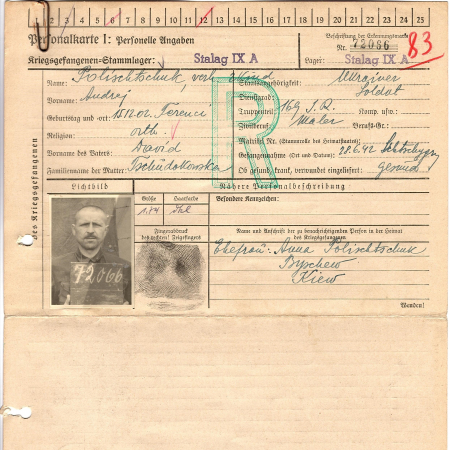 1 2 3 4 5 6 7 8 9 10 11 12 13 14 15 16 17 18 19 20 21 22 23 24 25
Personalkarte I: Personelle Angaben
Beschriftung der Erkennungsmarke
Nr. 72066
83
Kriegsgefangenen-Stammlager: Stalag IX A
Lager: Stalag IX A
des Kriegsgefangenen
Name: Polischtschuk,
Staatsangehörigkeit: Ukrainer
Vorname: Andrej
Dienstgrad: Soldat
Geburtstag und -ort: 15.12.02.
Truppenteil: 169 Komp. usw.:
Religion: orth.
Zivilberuf: Maler Berufs-Gr.:
Vorname des Vaters: David
Matrikel Nr. (Stammrolle des Heimatstaates):
Gefangennahme (Ort und Datum): 28.6.42
Familienname der Mutter:
Ob gesund, krank, verwundet eingeliefert: gesund
R
Lichtbild
Nähere Personalbeschreibung
Größe
Haarfarbe
Besondere Kennzeichen:
1.84
Fingerabdruck
des rechten! Zeigefingers
Name und Anschrift der zu benachrichtigenden Person in der Heimat
des Kriegsgefangenen
72066
Ehefrau: Anna Polischtschuk
Byschew
Kiew
Wenden!